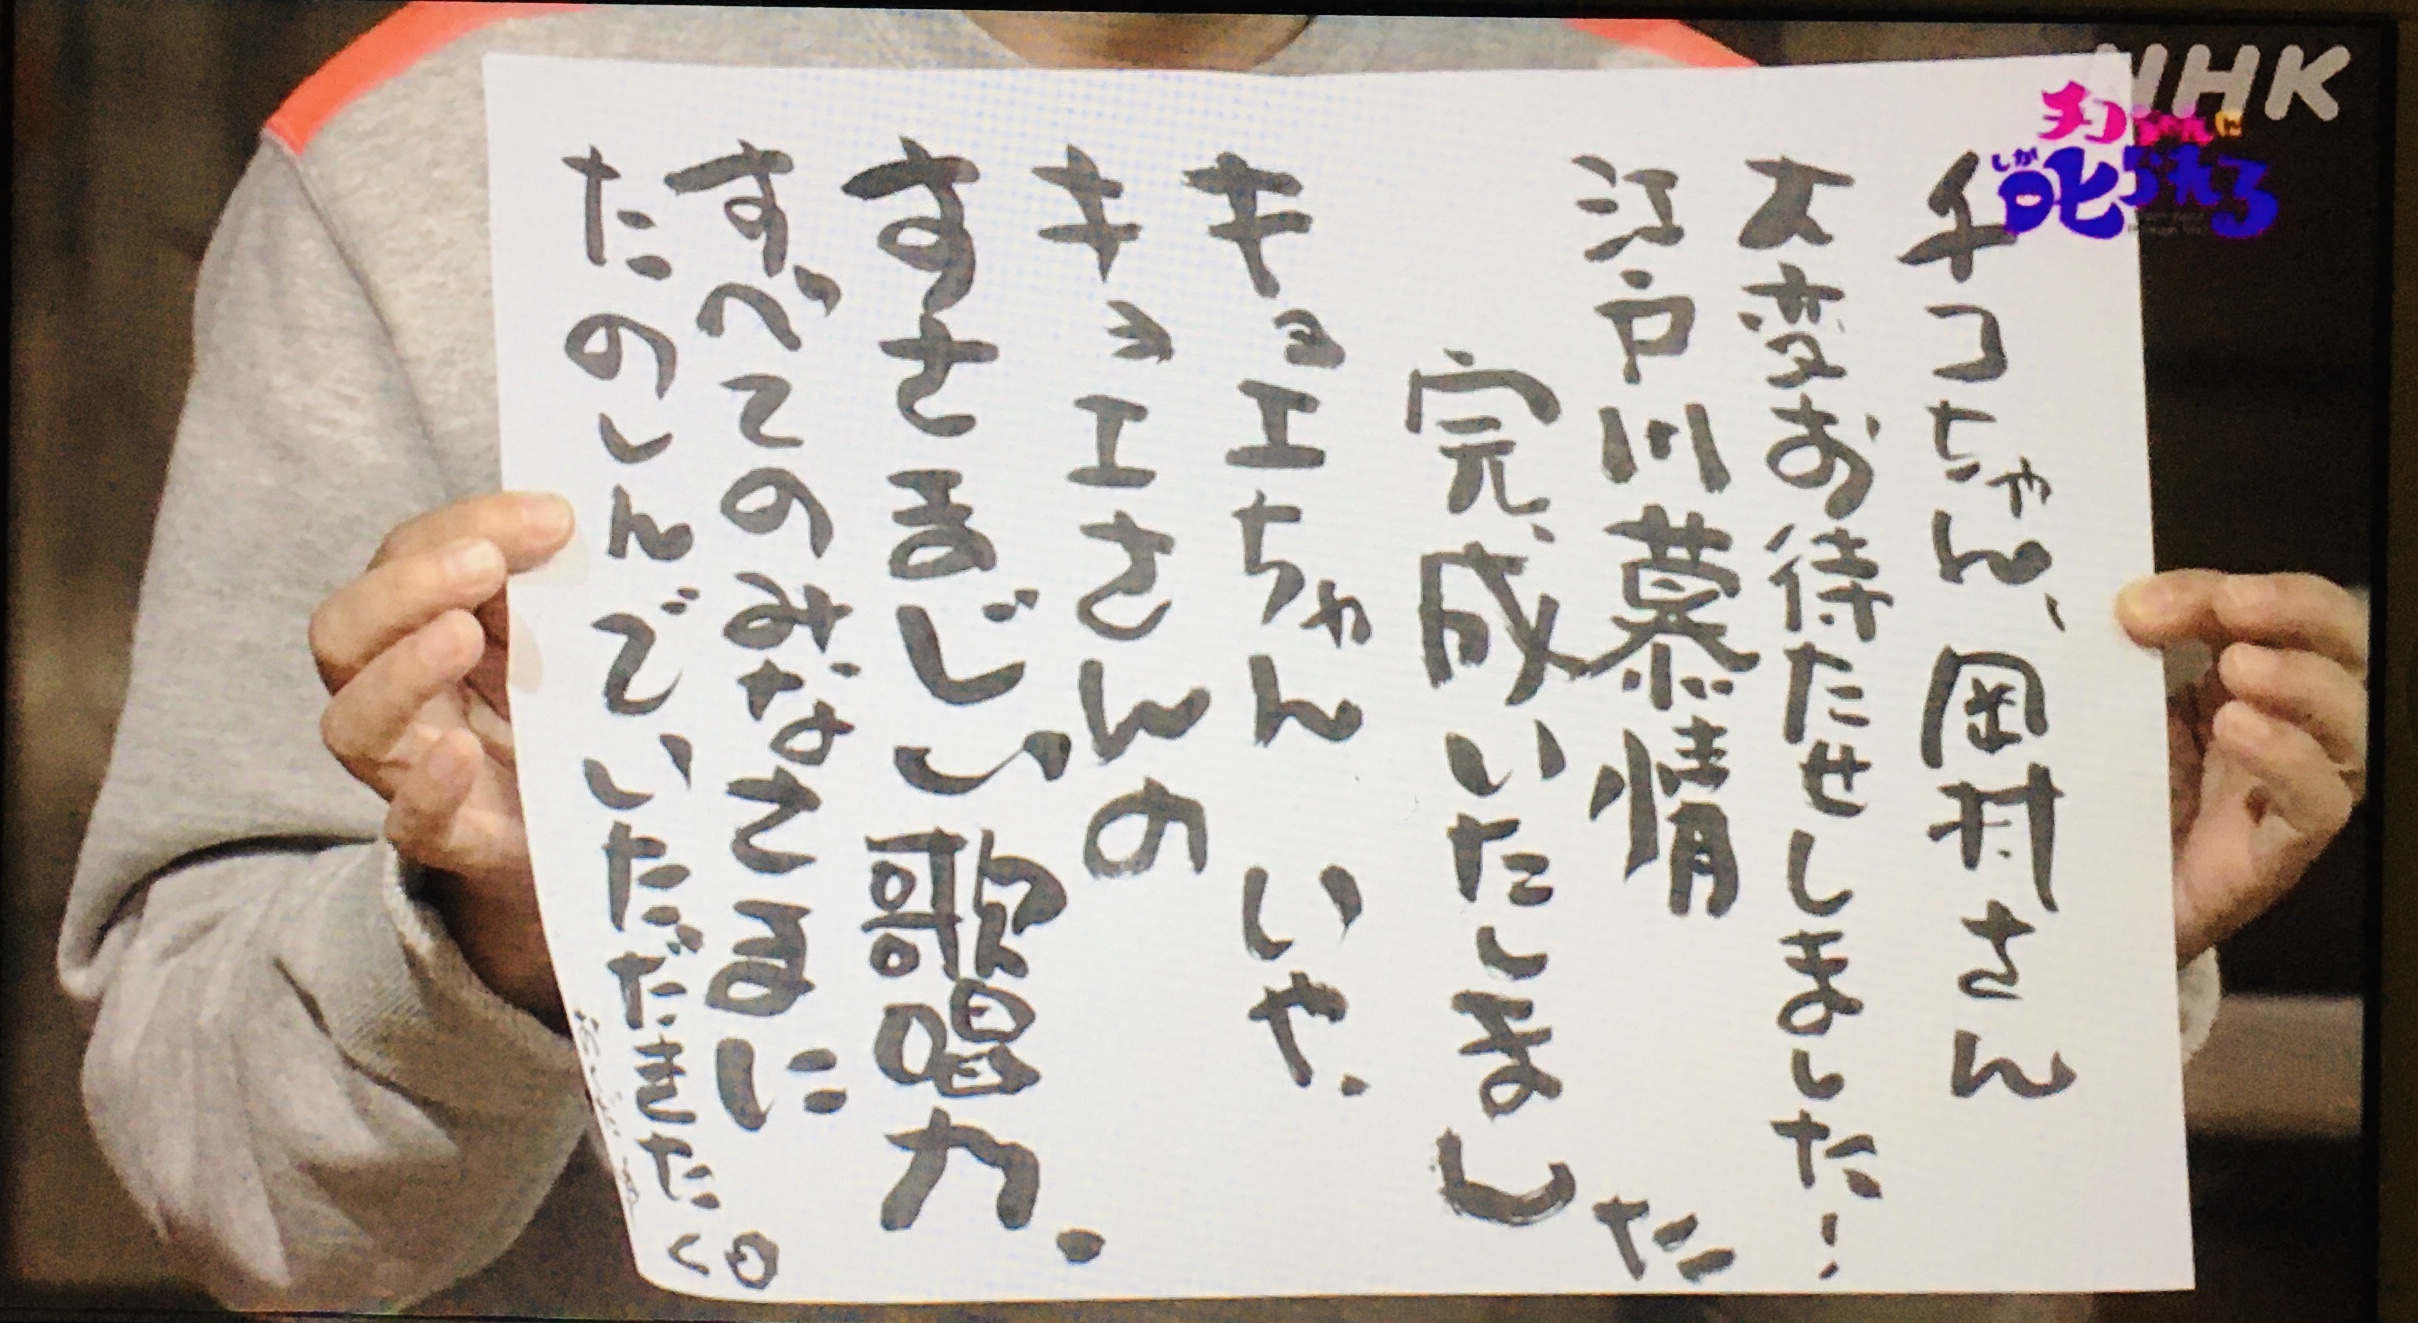 NHK
チコちゃんに
叱られる
しか
チコちゃん、岡村さん
大変お待たせしました!
江戸川慕情
完成いたしました
キョエちゃん いや、
キョエさんの
すさまじい歌唱力.
すべてのみなさまに
たのしんでいただきたく。